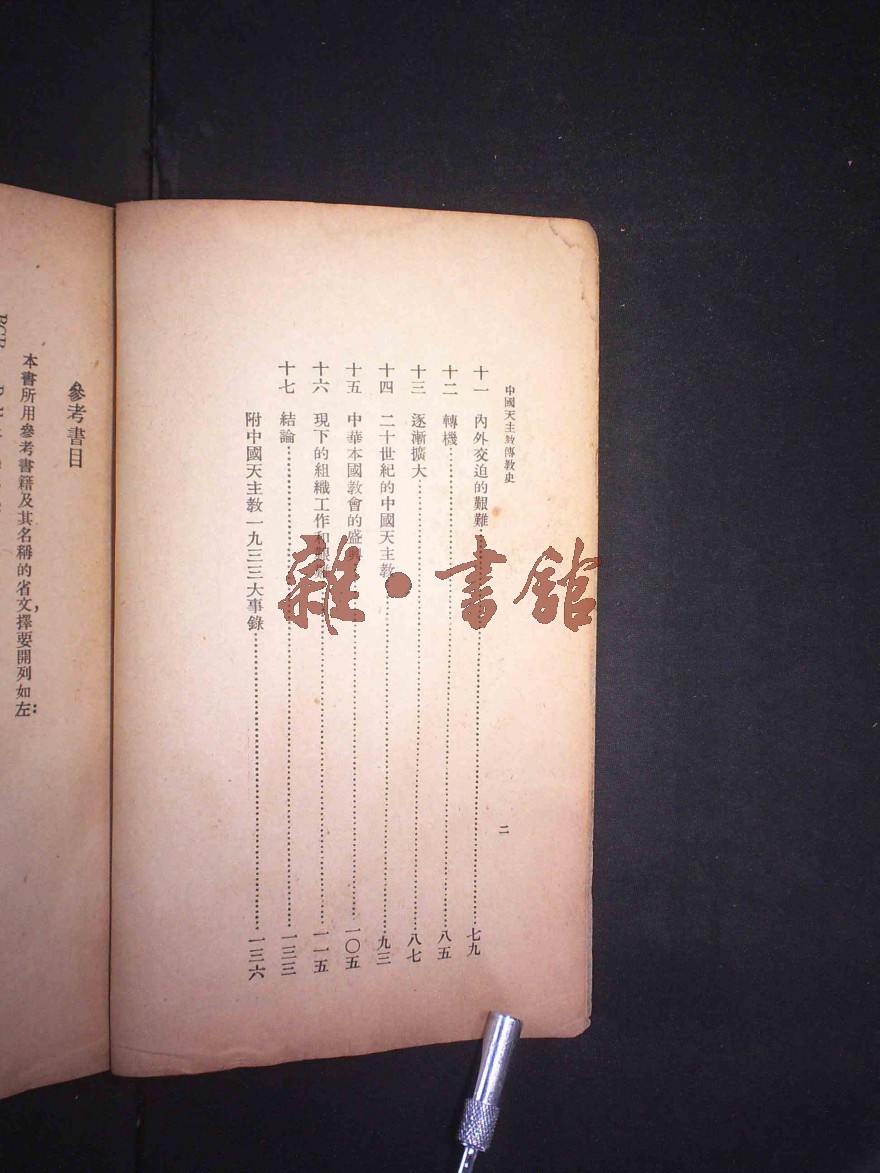 中國天主教傳教史
二
十一 內外交迫的艱難 七九
十二 轉機 八五
十三 逐漸擴大 八七
十四 二十世紀的中國天主教 九三
十五 中華本國教會的盛興 一〇五
十六 現下的組織工作和艱難 一一五
十七 結論 一三三
附中國天主教一九三三大事錄 一三六
雜·書舘
參考書目
本書所用參考書籍及其名稱的省文，擇要開列如左：